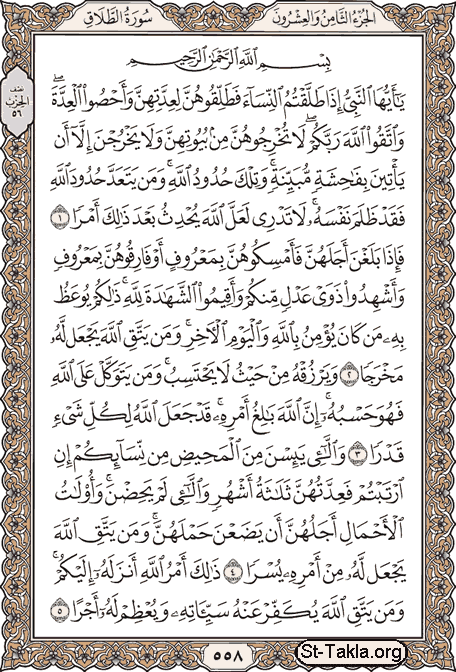 سُورَةُ الطَّلَاقِ الجُزْءُ الثَّامِنُ وَالعِشْرُونَ
بِسْمِ اللَّهِ الرَّحْمَٰنِ الرَّحِيمِ
يَٰٓأَيُّهَا ٱلنَّبِيُّ إِذَا طَلَّقْتُمُ ٱلنِّسَآءَ فَطَلِّقُوهُنَّ لِعِدَّتِهِنَّ وَأَحْصُوا۟ ٱلْعِدَّةَ ۖ
وَٱتَّقُوا۟ ٱللَّهَ رَبَّكُمْ ۖ لَا تُخْرِجُوهُنَّ مِنۢ بُيُوتِهِنَّ وَلَا يَخْرُجْنَ إِلَّآ أَن
يَأْتِينَ بِفَٰحِشَةٍ مُّبَيِّنَةٍ ۚ وَتِلْكَ حُدُودُ ٱللَّهِ ۚ وَمَن يَتَعَدَّ حُدُودَ ٱللَّهِ
فَقَدْ ظَلَمَ نَفْسَهُۥ ۚ لَا تَدْرِى لَعَلَّ ٱللَّهَ يُحْدِثُ بَعْدَ ذَٰلِكَ أَمْرًا ١
فَإِذَا بَلَغْنَ أَجَلَهُنَّ فَأَمْسِكُوهُنَّ بِمَعْرُوفٍ أَوْ فَارِقُوهُنَّ بِمَعْرُوفٍ
وَأَشْهِدُوا۟ ذَوَىْ عَدْلٍ مِّنكُمْ وَأَقِيمُوا۟ ٱلشَّهَٰدَةَ لِلَّهِ ۚ ذَٰلِكُمْ يُوعَظُ
بِهِۦ مَن كَانَ يُؤْمِنُ بِٱللَّهِ وَٱلْيَوْمِ ٱلْءَاخِرِ ۚ وَمَن يَتَّقِ ٱللَّهَ يَجْعَل لَّهُۥ
مَخْرَجًا ٢ وَيَرْزُقْهُ مِنْ حَيْثُ لَا يَحْتَسِبُ ۚ وَمَن يَتَوَكَّلْ عَلَى ٱللَّهِ
فَهُوَ حَسْبُهُۥٓ ۚ إِنَّ ٱللَّهَ بَٰلِغُ أَمْرِهِۦ ۚ قَدْ جَعَلَ ٱللَّهُ لِكُلِّ شَىْءٍ
قَدْرًا ٣ وَٱلَّٰٓـِٔى يَئِسْنَ مِنَ ٱلْمَحِيضِ مِن نِّسَآئِكُمْ إِنِ
ٱرْتَبْتُمْ فَعِدَّتُهُنَّ ثَلَٰثَةُ أَشْهُرٍ وَٱلَّٰٓـِٔى لَمْ يَحِضْنَ ۚ وَأُو۟لَٰتُ
ٱلْأَحْمَالِ أَجَلُهُنَّ أَن يَضَعْنَ حَمْلَهُنَّ ۚ وَمَن يَتَّقِ ٱللَّهَ
يَجْعَل لَّهُۥ مِنْ أَمْرِهِۦ يُسْرًا ٤ ذَٰلِكَ أَمْرُ ٱللَّهِ أَنزَلَهُۥٓ إِلَيْكُمْ ۚ
وَمَن يَتَّقِ ٱللَّهَ يُكَفِّرْ عَنْهُ سَيِّـَٔاتِهِۦ وَيُعْظِمْ لَهُۥٓ أَجْرًا ٥
نصف
الحزب
٥٦
٥٥٨
St-Takla.org